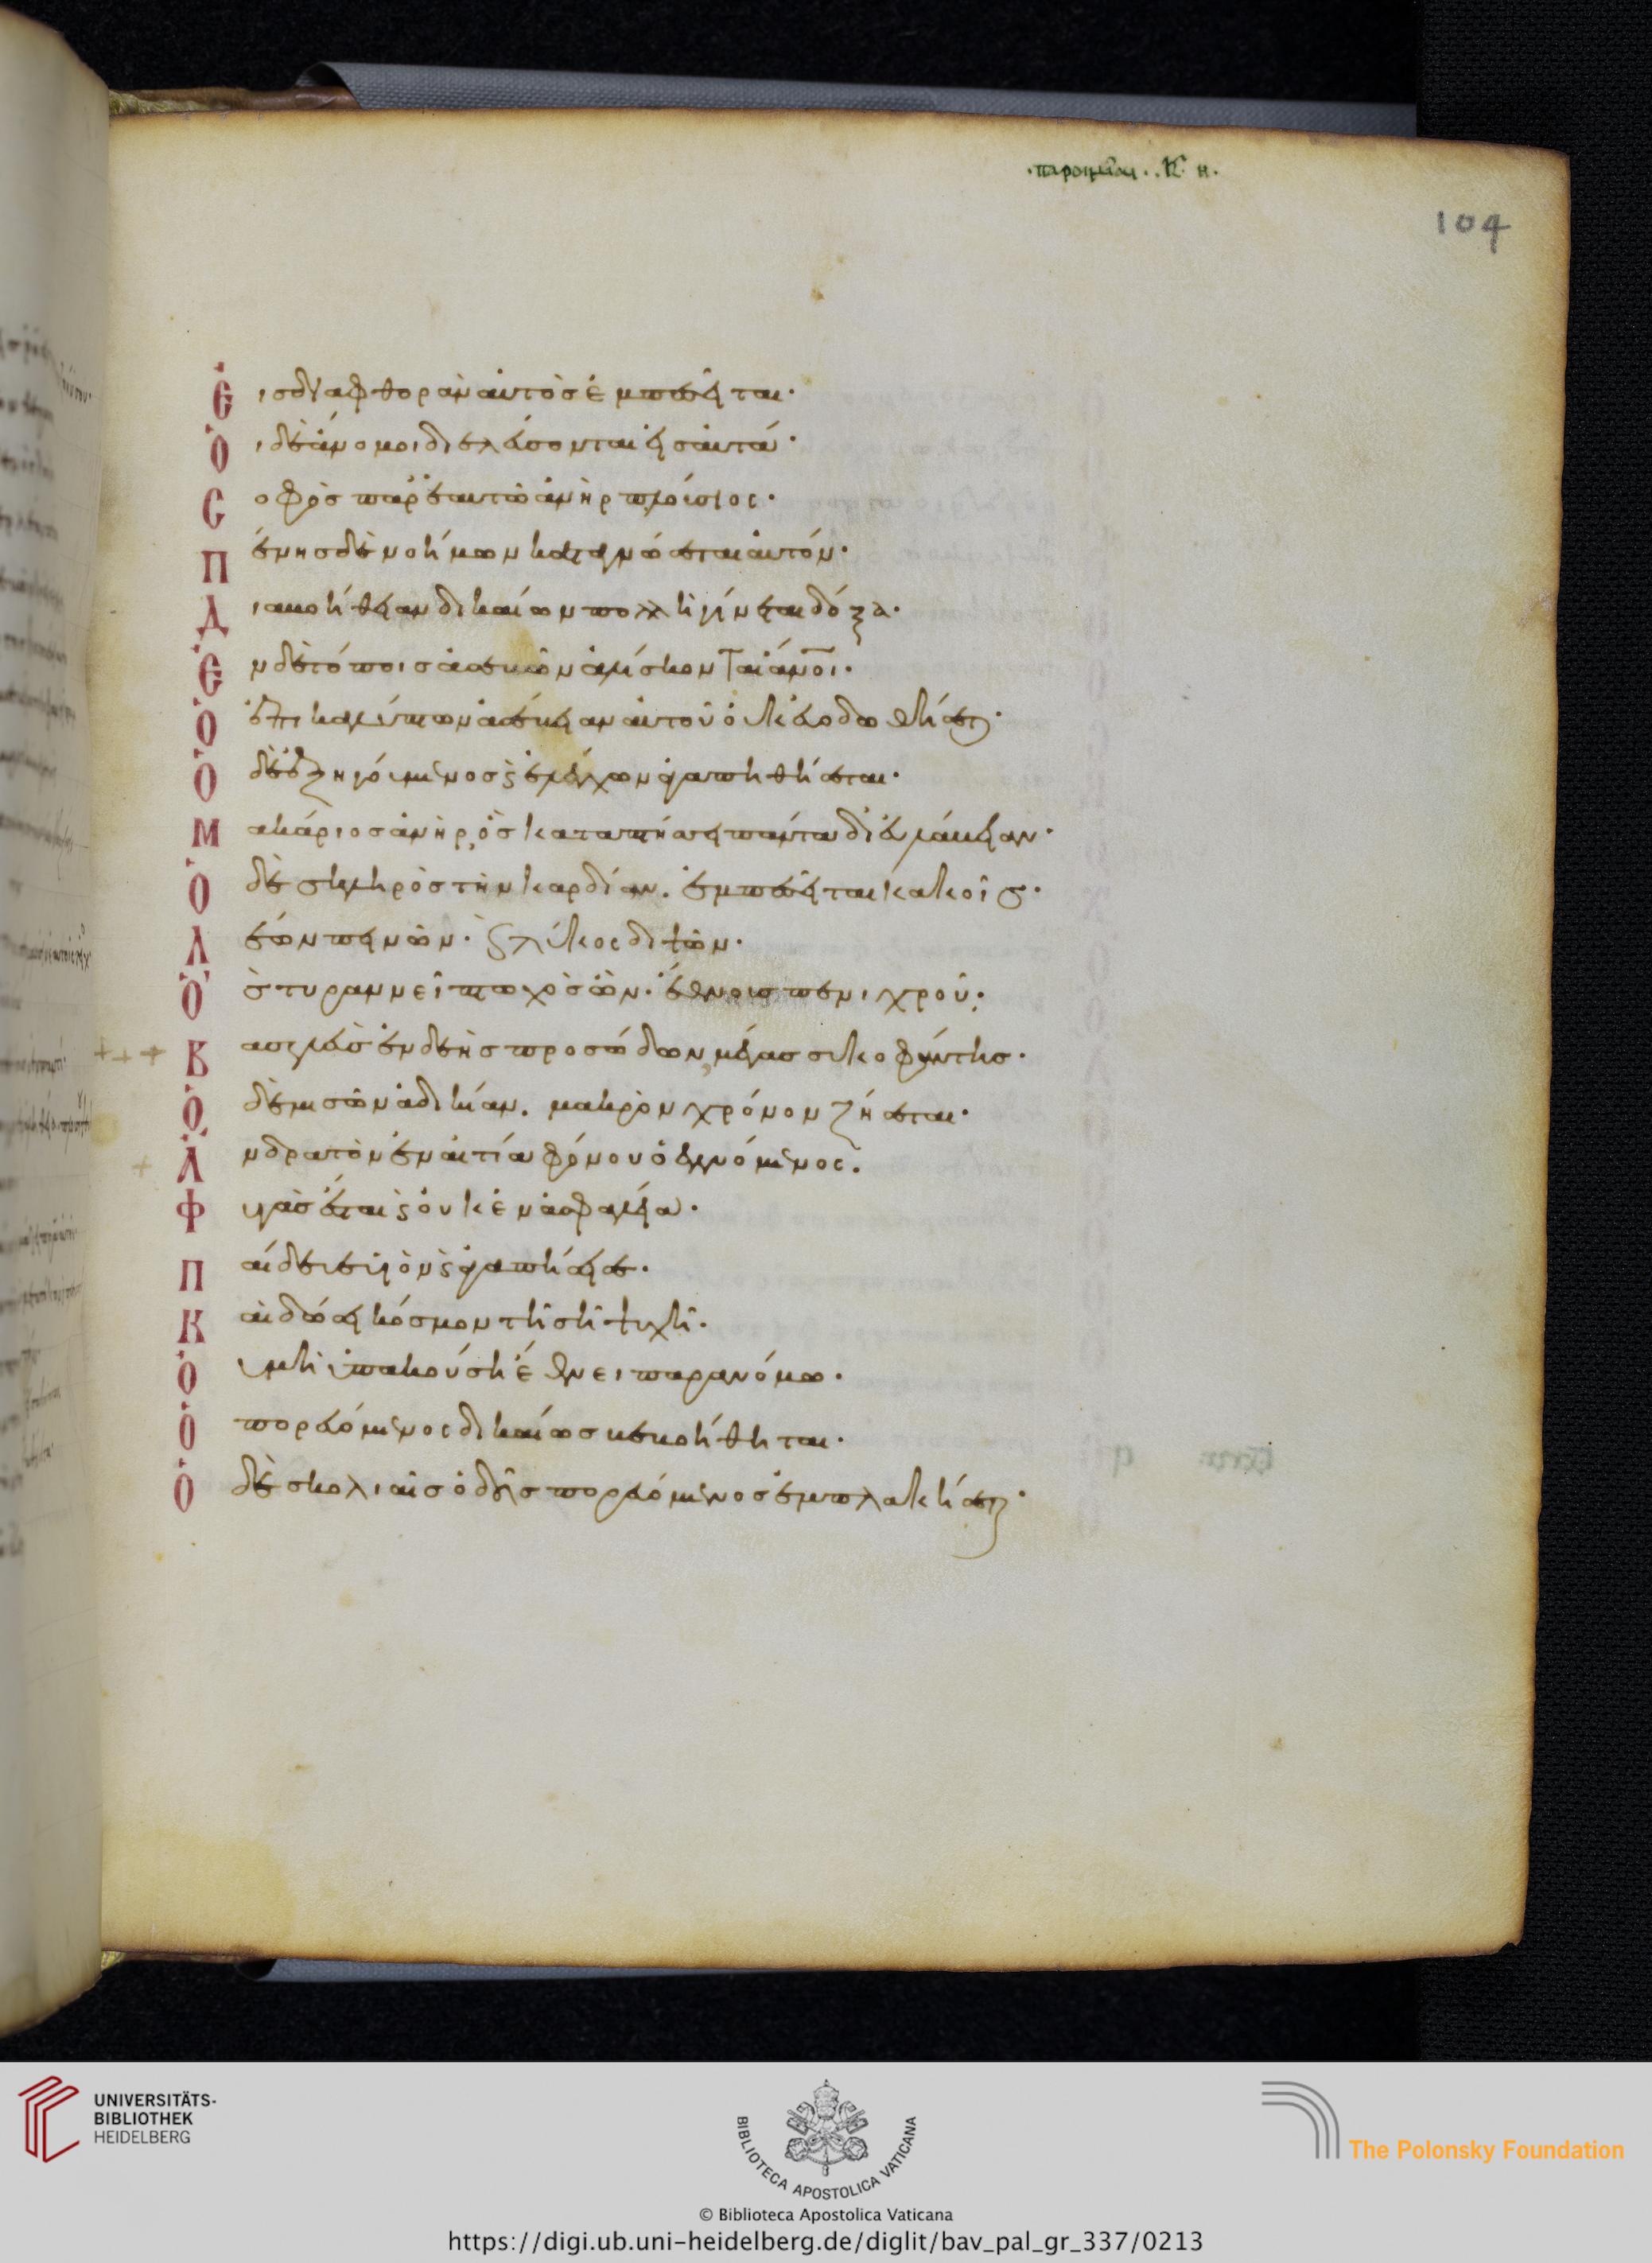 ·παροιμίαι· κε κη·
104
Εἰς διαφθορὰν αὐτὸς ἐμπεσεῖται·
Οἱ δὲ ἄνομοι διελεύσονται ἀγαθά·
Σοφὸς παρ' ἑαυτῶ ἀνὴρ πλούσιος·
Πένης δὲ νοήμων καταγνώσεται αὐτόν·
Διὰ βοήθειαν δικαίων πολλὴ γίνεται δόξα·
Ἐν δὲ τόποις ἀσεβῶν ἁλίσκονται ἄνοι·
Ὁ ἐπικαλύπτων ἀσέβειαν αὐτοῦ οὐκ εὐοδωθήσεται·
Ὁ δὲ ἐξηγούμενος καὶ ἐλέγχων ἀγαπηθήσεται·
Μακάριος ἀνὴρ, ὃς καταπτήσσει πάντα δι' εὐλάβειαν·
Ὁ δὲ σκληρὸς τὴν καρδίαν. ἐμπεσεῖται κακοῖς·
Λέων πεινῶν· καὶ λύκος διψῶν·
Ὃς τυραννεῖ πτωχὸς ὢν· ἔθνους πενιχροῦ·
Βασιλεὺς ἐνδεὴς προσόδων, μέγας συκοφάντης·
Ὁ δὲ μισῶν ἀδικίαν. μακρὸν χρόνον ζήσεται·
Ἄνδρα τὸν ἐν αἰτία φόνου ὁ ἐγγυώμενος.
Φυγὰς ἔσται καὶ οὐκ ἐν ἀσφαλεία·
Παίδευε υἱὸν καὶ ἀγαπήσει σε·
Καὶ δώσει κόσμον τῆ σῆ ψυχῆ·
Οὐ μὴ ὑπακούση ἔθνει παρανόμω·
Ὁ πορευόμενος δικαίως βεβοήθηται·
Ὁ δὲ σκολιαῖς ὁδοῖς πορευόμενος ἐμπλακήσεται·
UNIVERSITÄTS-
BIBLIOTHEK
HEIDELBERG
BIBLIOTECA APOSTOLICA VATICANA
The Polonsky Foundation
© Biblioteca Apostolica Vaticana
https://digi.ub.uni-heidelberg.de/diglit/bav_pal_gr_337/0213